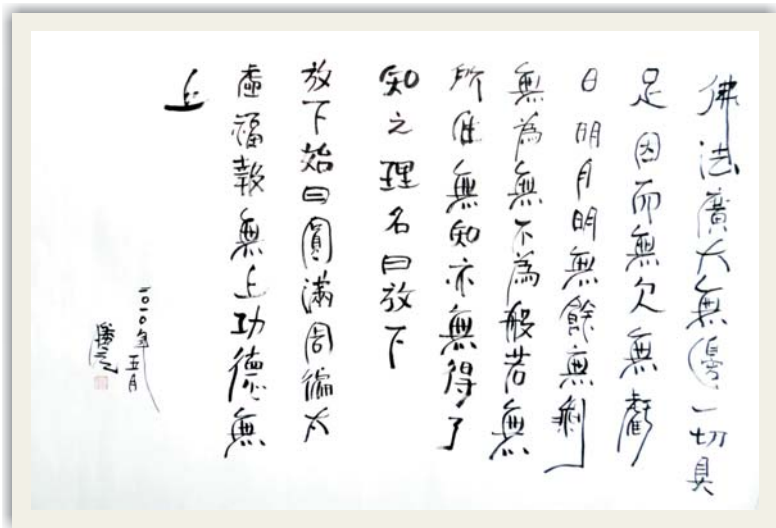 佛法廣大無邊一切具
足因而無欠無虧
日明月明無餘無剩
無為無不為般若無
所住無知亦無得了
知之理名曰放下
放下始曰圓滿周徧太
虛福報無上功德無
上
二〇一〇年五月